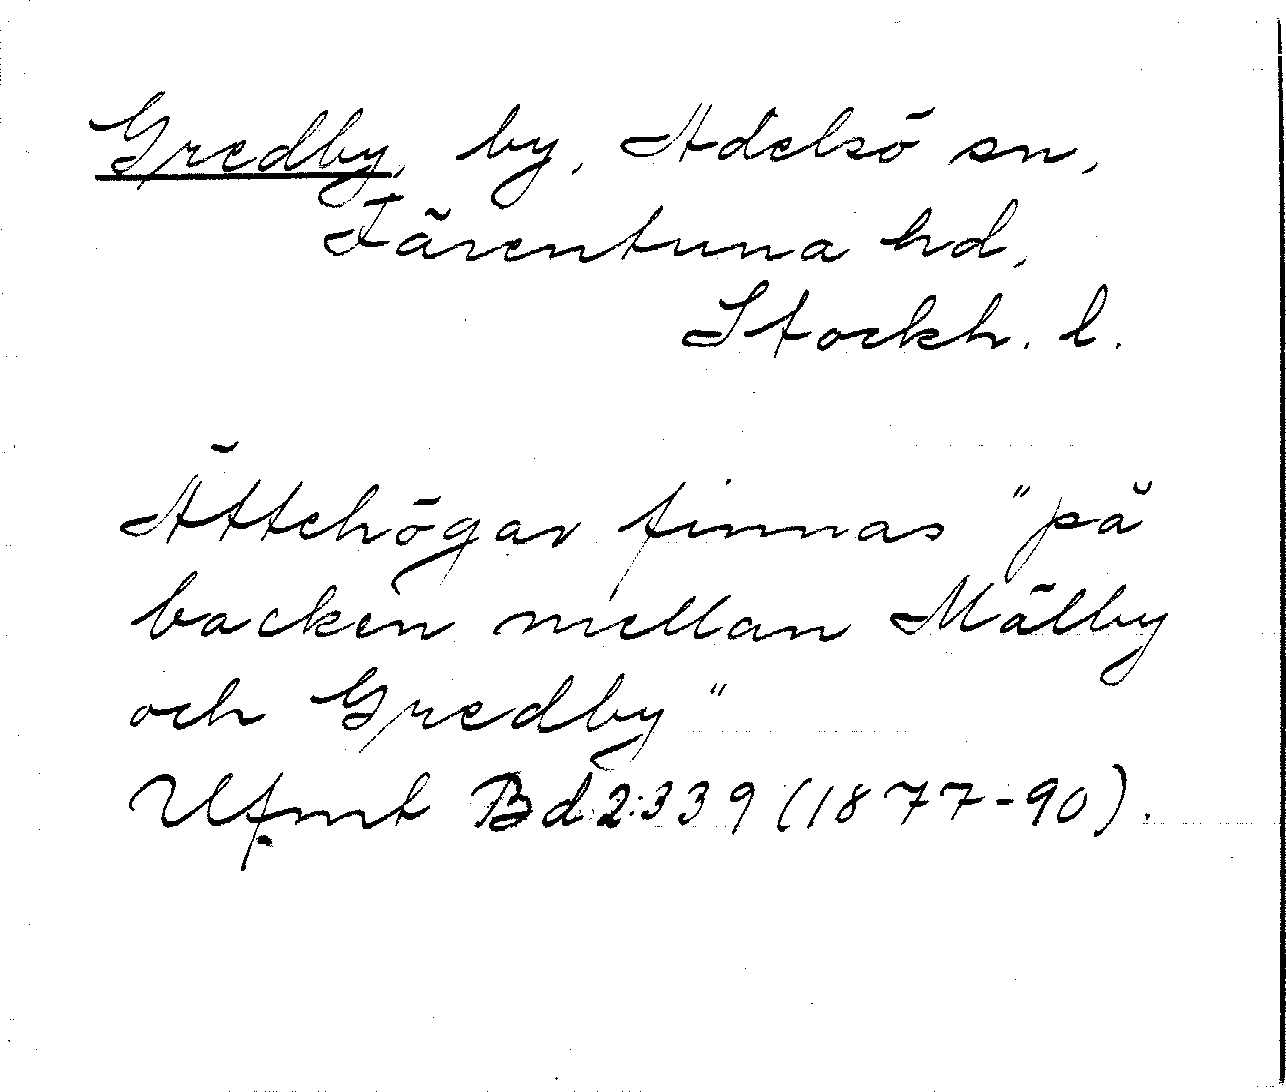 Gredby, by, Adelsö sn,
Färentuna hd,
Stockh. l.
Ättehögar finnas "på
backen mellan Mälby
och Gredby"
Ufmt Bd 2:339 (1877-90).